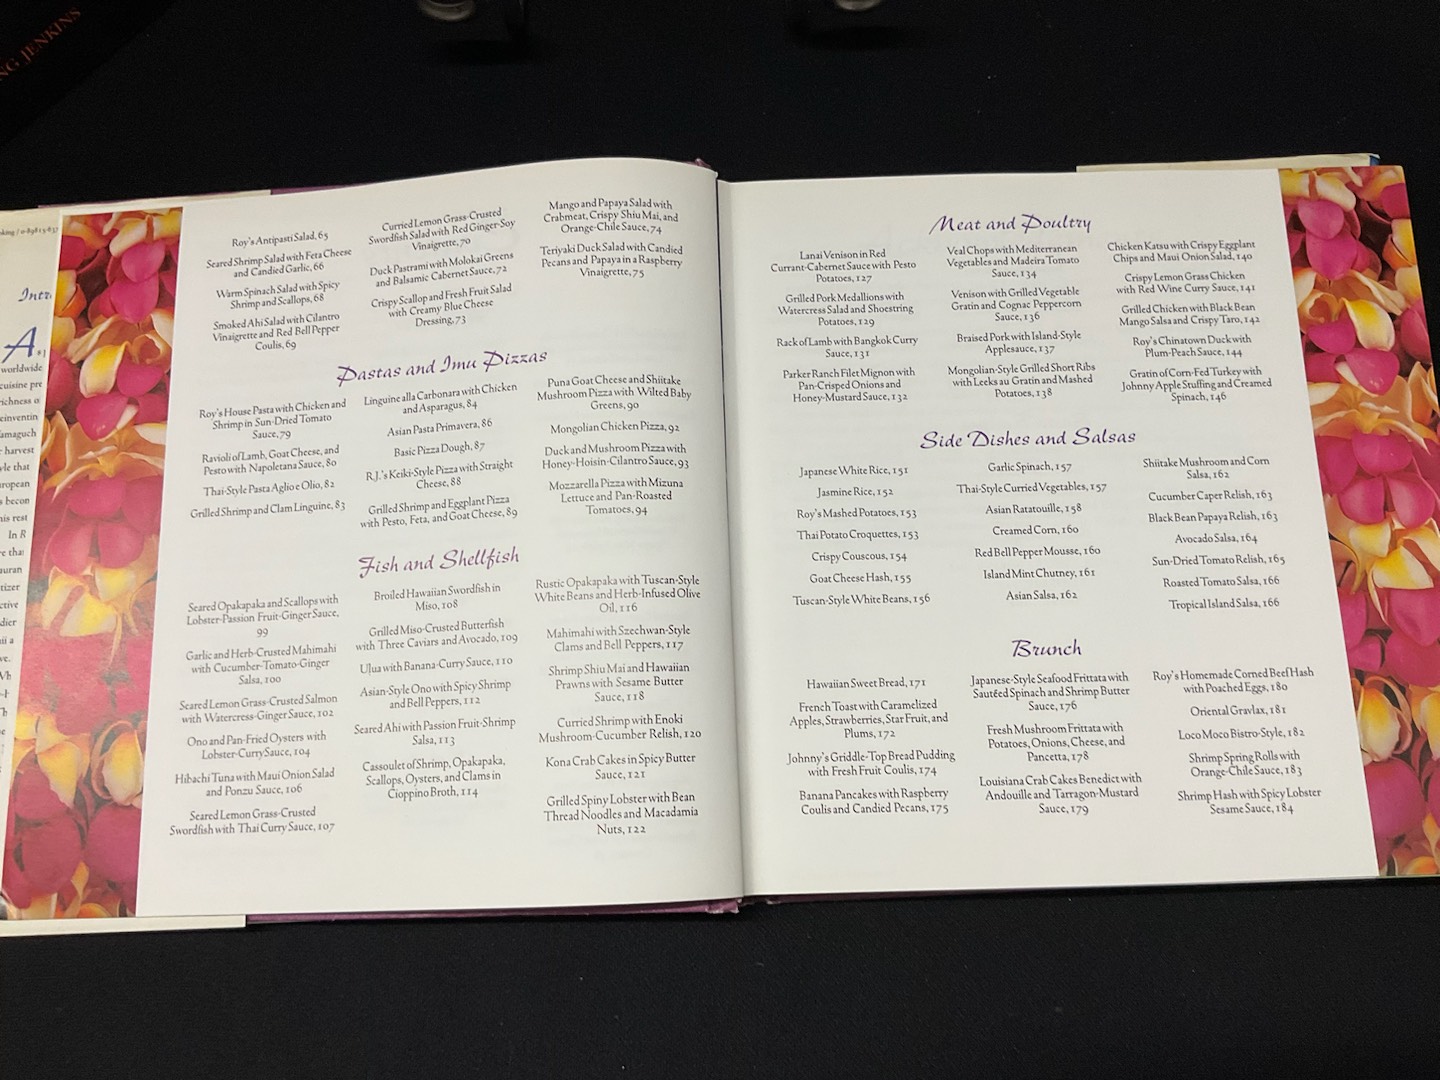 NG JENKINS
Intr
A
worldwide
cuisine pre
Roy's Antipasti Salad, 65
Seared Shrimp Salad with Feta Cheese
and Candied Garlic, 66
Warm Spinach Salad with Spicy
Shrimp and Scallops, 68
Smoked Ahi Salad with Cilantro
Vinaigrette and Red Bell Pepper
Coulis, 69
Curried Lemon Grass-Crusted
Swordfish Salad with Red Ginger-Soy
Vinaigrette, 70
Duck Pastrami with Molokai Greens
and Balsamic Cabernet Sauce, 72
Crispy Scallop and Fresh Fruit Salad
with Creamy Blue Cheese
Dressing, 73
Mango and Papaya Salad with
Crabmeat, Crispy Shiu Mai, and
Orange-Chile Sauce, 74
Teriyaki Duck Salad with Candied
Pecans and Papaya in a Raspberry
Vinaigrette, 75
Pastas and Imu Pizzas
Roy's House Pasta with Chicken and
Shrimp in Sun-Dried Tomato
Sauce, 79
Ravioli of Lamb, Goat Cheese, and
Pesto with Napoletana Sauce, 80
Thai-Style Pasta Aglio e Olio, 82
Grilled Shrimp and Clam Linguine, 83
Linguine alla Carbonara with Chicken
and Asparagus, 84
Asian Pasta Primavera, 86
Basic Pizza Dough, 87
R.J.'s Keiki-Style Pizza with Straight
Cheese, 88
Grilled Shrimp and Eggplant Pizza
with Pesto, Feta, and Goat Cheese, 89
Puna Goat Cheese and Shiitake
Mushroom Pizza with Wilted Baby
Greens, 90
Mongolian Chicken Pizza, 92
Duck and Mushroom Pizza with
Honey-Hoisin-Cilantro Sauce, 93
Mozzarella Pizza with Mizuna
Lettuce and Pan-Roasted
Tomatoes, 94
Fish and Shellfish
Seared Opakapaka and Scallops with
Lobster-Passion Fruit-Ginger Sauce,
99
Garlic and Herb-Crusted Mahimahi
with Cucumber-Tomato-Ginger
Salsa, 100
Seared Lemon Grass-Crusted Salmon
with Watercress-Ginger Sauce, 102
Ono and Pan-Fried Oysters with
Lobster-Curry Sauce, 104
Hibachi Tuna with Maui Onion Salad
and Ponzu Sauce, 106
Seared Lemon Grass-Crusted
Swordfish with Thai Curry Sauce, 107
Broiled Hawaiian Swordfish in
Miso, 108
Grilled Miso-Crusted Butterfish
with Three Caviars and Avocado, 109
Ulua with Banana-Curry Sauce, 110
Asian-Style Ono with Spicy Shrimp
and Bell Peppers, 112
Seared Ahi with Passion Fruit-Shrimp
Salsa, 113
Cassoulet of Shrimp, Opakapaka,
Scallops, Oysters, and Clams in
Cioppino Broth, 114
Rustic Opakapaka with Tuscan-Style
White Beans and Herb-Infused Olive
Oil, 116
Mahimahi with Szechwan-Style
Clams and Bell Peppers, 117
Shrimp Shiu Mai and Hawaiian
Prawns with Sesame Butter
Sauce, 118
Curried Shrimp with Enoki
Mushroom-Cucumber Relish, 120
Kona Crab Cakes in Spicy Butter
Sauce, 121
Grilled Spiny Lobster with Bean
Thread Noodles and Macadamia
Nuts, 122
Meat and Poultry
Lanai Venison in Red
Currant-Cabernet Sauce with Pesto
Potatoes, 127
Grilled Pork Medallions with
Watercress Salad and Shoestring
Potatoes, 129
Rack of Lamb with Bangkok Curry
Sauce, 131
Parker Ranch Filet Mignon with
Pan-Crisped Onions and
Honey-Mustard Sauce, 132
Veal Chops with Mediterranean
Vegetables and Madeira Tomato
Sauce, 134
Venison with Grilled Vegetable
Gratin and Cognac Peppercorn
Sauce, 136
Braised Pork with Island-Style
Applesauce, 137
Mongolian-Style Grilled Short Ribs
with Leeks au Gratin and Mashed
Potatoes, 138
Chicken Katsu with Crispy Eggplant
Chips and Maui Onion Salad, 140
Crispy Lemon Grass Chicken
with Red Wine Curry Sauce, 141
Grilled Chicken with Black Bean
Mango Salsa and Crispy Taro, 142
Roy's Chinatown Duck with
Plum-Peach Sauce, 144
Gratin of Corn-Fed Turkey with
Johnny Apple Stuffing and Creamed
Spinach, 146
Side Dishes and Salsas
Japanese White Rice, 151
Jasmine Rice, 152
Roy's Mashed Potatoes, 153
Thai Potato Croquettes, 153
Crispy Couscous, 154
Goat Cheese Hash, 155
Tuscan-Style White Beans, 156
Garlic Spinach, 157
Thai-Style Curried Vegetables, 157
Asian Ratatouille, 158
Creamed Corn, 160
Red Bell Pepper Mousse, 160
Island Mint Chutney, 161
Asian Salsa, 162
Shiitake Mushroom and Corn
Salsa, 162
Cucumber Caper Relish, 163
Black Bean Papaya Relish, 163
Avocado Salsa, 164
Sun-Dried Tomato Relish, 165
Roasted Tomato Salsa, 166
Tropical Island Salsa, 166
Brunch
Hawaiian Sweet Bread, 171
French Toast with Caramelized
Apples, Strawberries, Star Fruit, and
Plums, 172
Johnny's Griddle-Top Bread Pudding
with Fresh Fruit Coulis, 174
Banana Pancakes with Raspberry
Coulis and Candied Pecans, 175
Japanese-Style Seafood Frittata with
Sautéed Spinach and Shrimp Butter
Sauce, 176
Fresh Mushroom Frittata with
Potatoes, Onions, Cheese, and
Pancetta, 178
Louisiana Crab Cakes Benedict with
Andouille and Tarragon-Mustard
Sauce, 179
Roy's Homemade Corned Beef Hash
with Poached Eggs, 180
Oriental Gravlax, 181
Loco Moco Bistro-Style, 182
Shrimp Spring Rolls with
Orange-Chile Sauce, 183
Shrimp Hash with Spicy Lobster
Sesame Sauce, 184